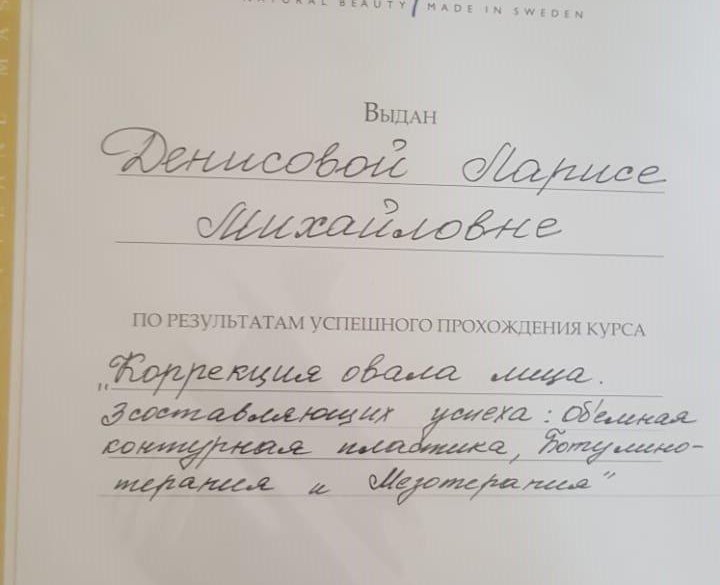 NATURAL BEAUTY / MADE IN SWEDEN
Выдан
Денисовой Ларисе
Михайловне
ПО РЕЗУЛЬТАТАМ УСПЕШНОГО ПРОХОЖДЕНИЯ КУРСА
„Коррекция овала лица.
3 составляющих успеха: Объемная
контурная пластика, Ботулино-
терапия и Мезотерапия"